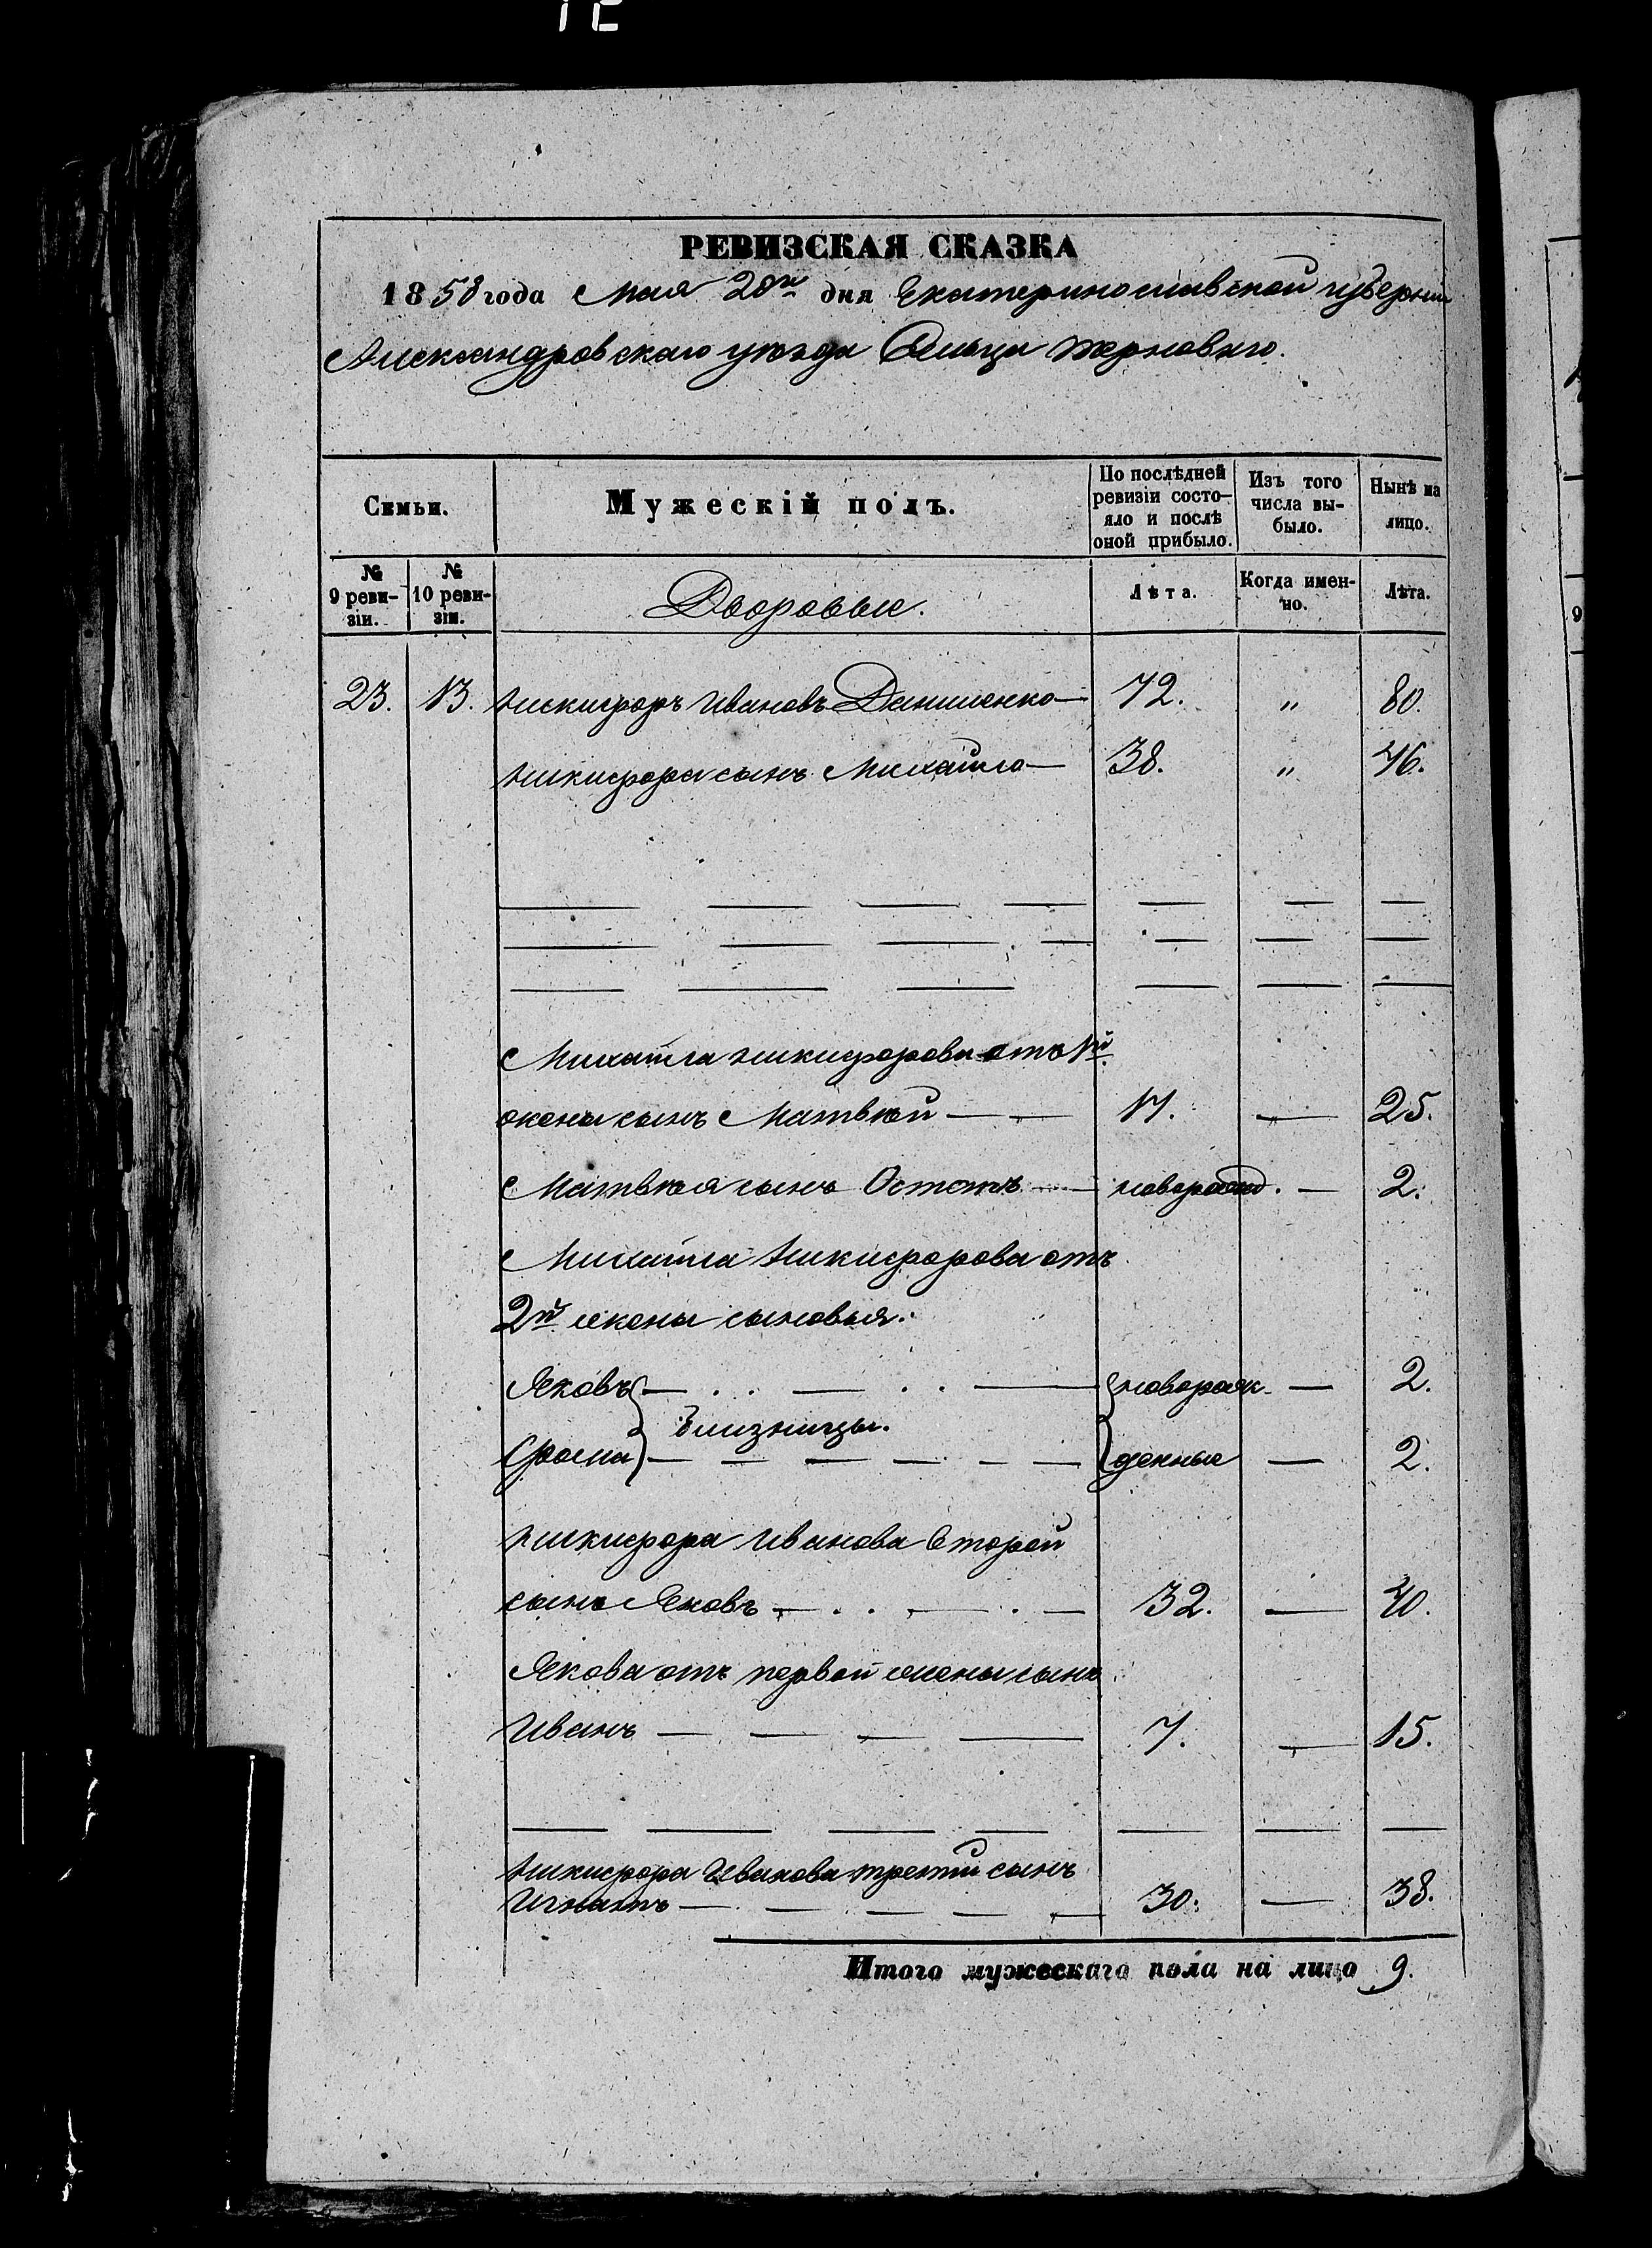 РЕВИЗСКАЯ СКАЗКА
1858 года Мая 20го дня Екатеринославской губернии
Александровскаго уѣзда Сельца Терноваго.
Семьи.
Мужескій полъ.
По послѣдней ревизіи состояло и послѣ оной прибыло.
Изъ того числа выбыло.
Нынѣ на лицо.
№ 9 ревизіи.
№ 10 ревизіи.
Дворовые.
Лѣта.
Когда именно.
Лѣта.
23. 13. Никифоръ Ивановъ Даниленко — 72. „ 80.
Никифора сынъ Михайло — 38. „ 46.
Михайла Никифорова отъ 1й
жены сынъ Матвѣй — 17. — 25.
Матвѣя сынъ — новорожд. — 2.
Михайла Никифорова отъ
2й жены сыновья:
Яковъ — новорож- — 2.
близницы.
Фома — денные — 2.
Никифора Иванова Второй
сынъ Яковъ — 32. — 40.
Якова отъ первой жены сынъ
Иванъ — 7. — 15.
Никифора Иванова третій сынъ
Игнатъ — 30. — 38.
Итого мужескаго пола на лицо 9.
9